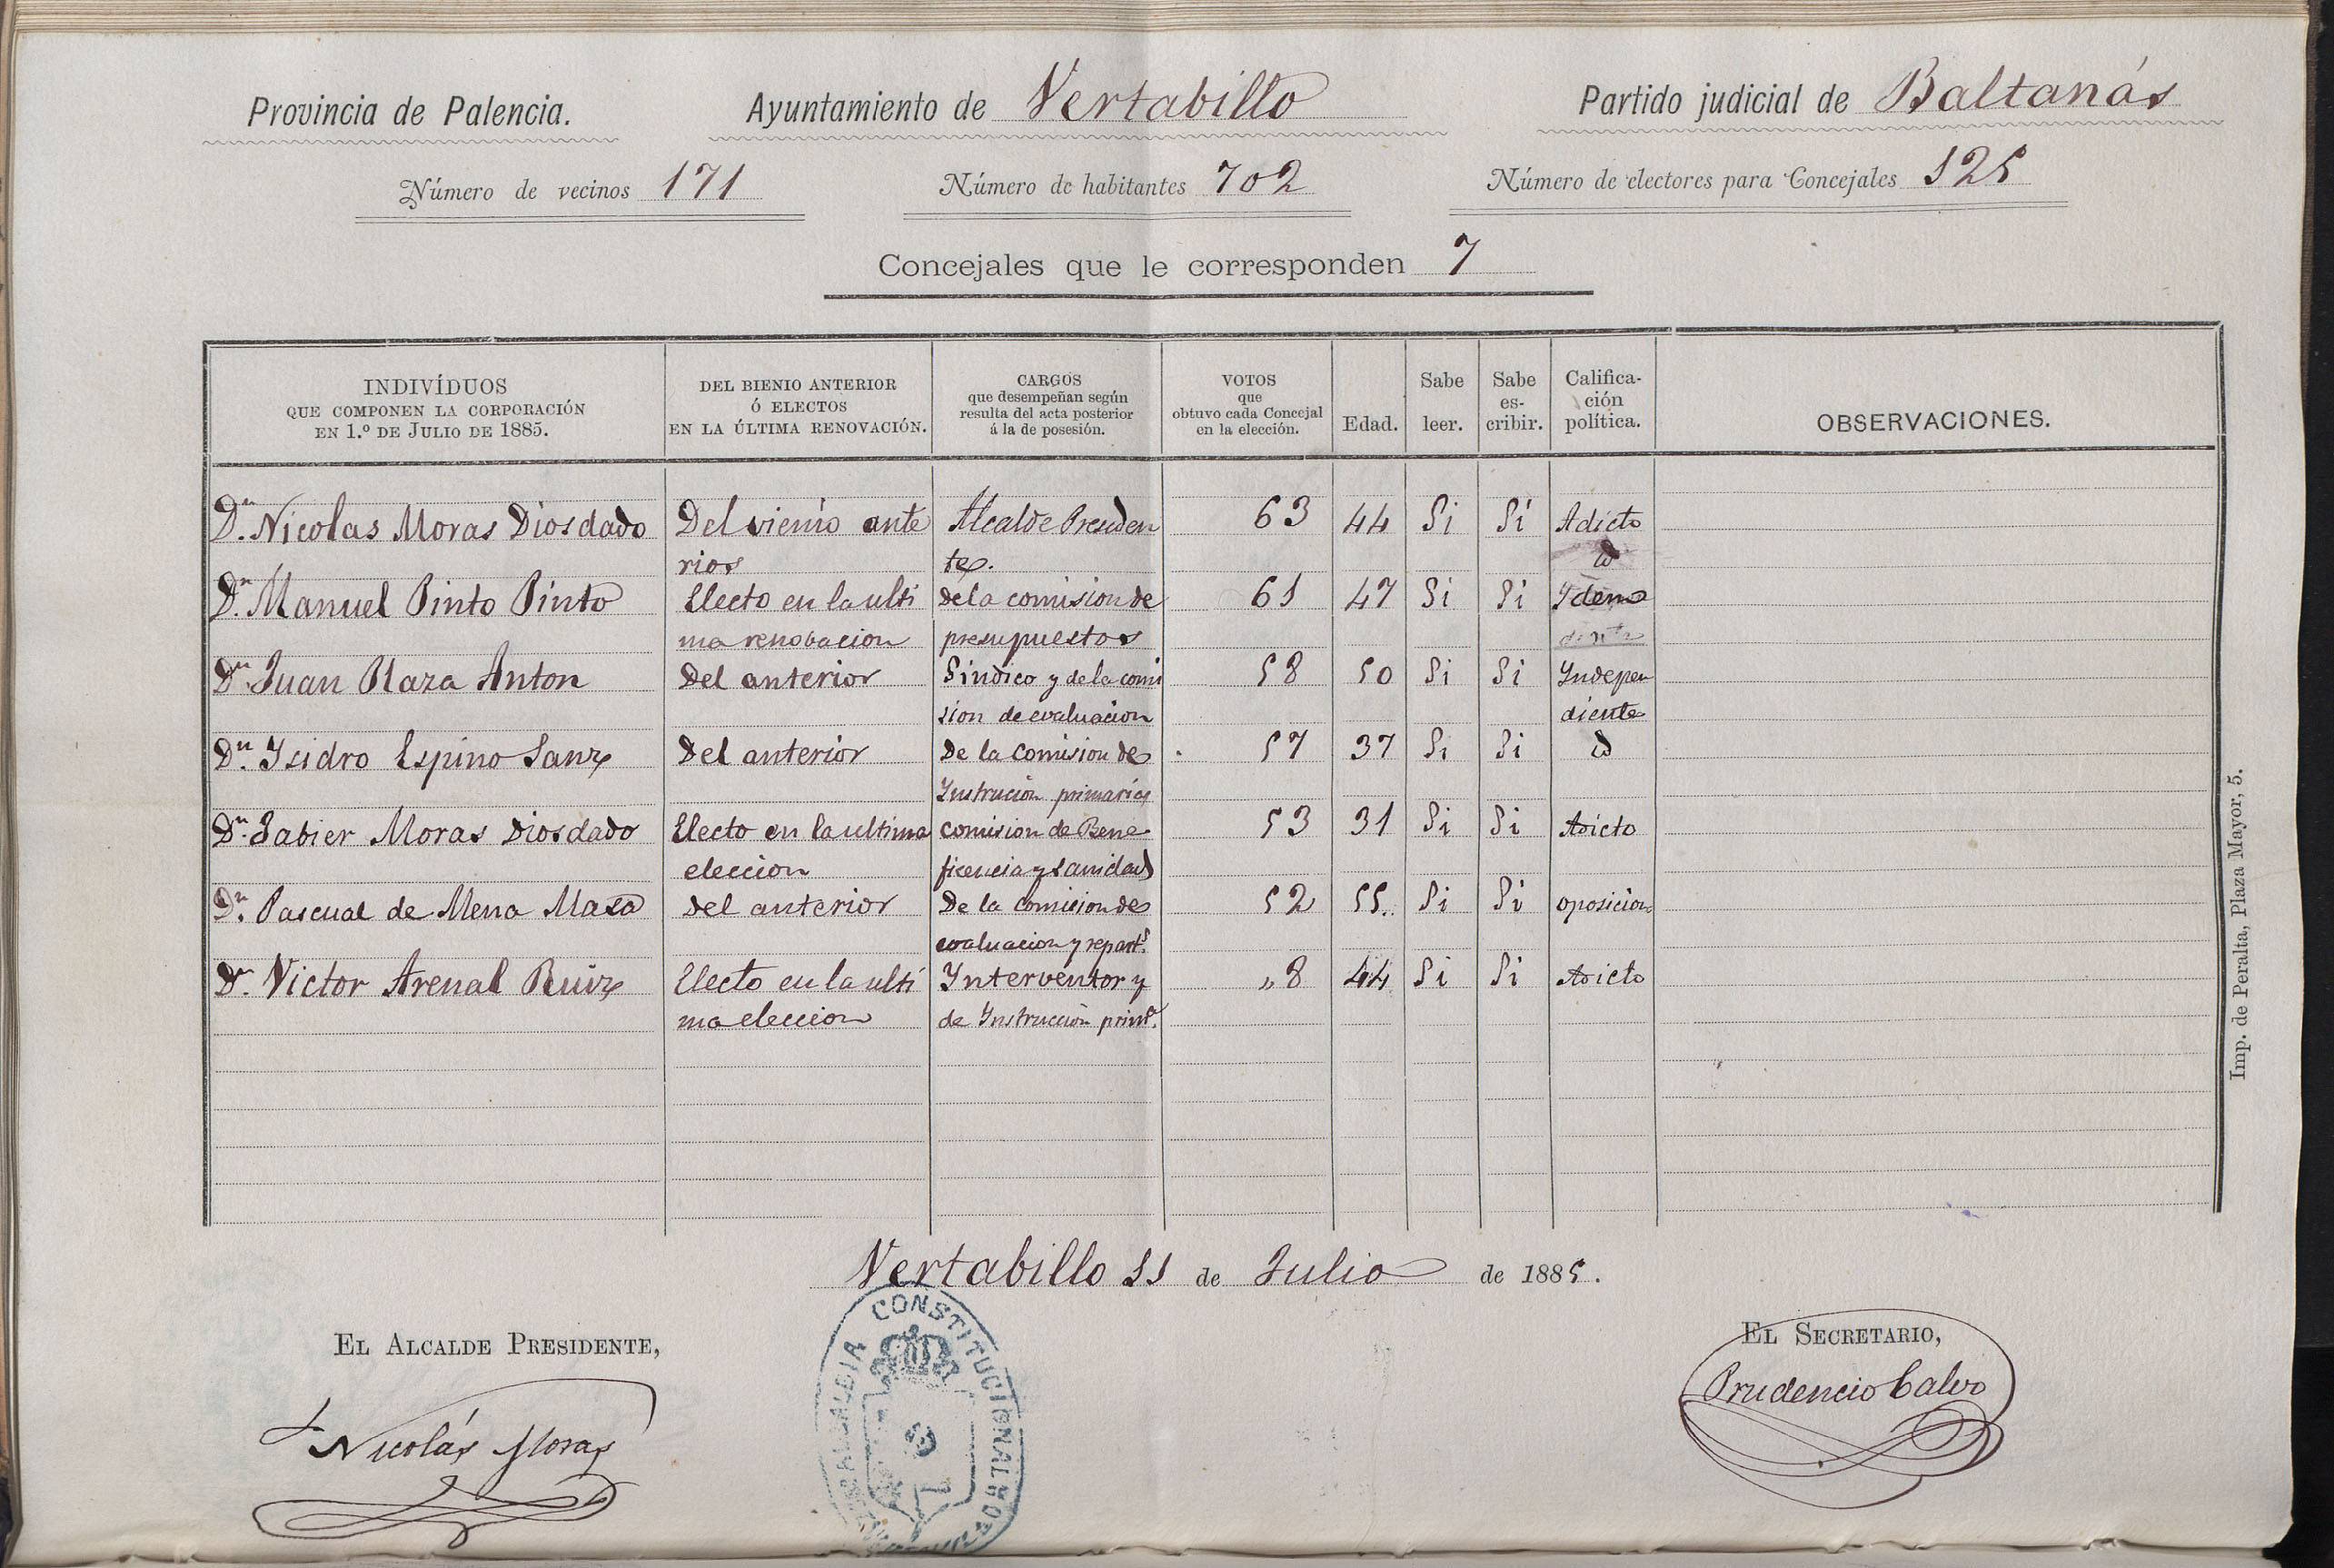 Provincia de Palencia. Ayuntamiento de Vertabillo Partido judicial de Baltanás
Número de vecinos 171 Número de habitantes 702 Número de electores para Concejales 125
Concejales que le corresponden 7
INDIVÍDUOS
QUE COMPONEN LA CORPORACIÓN
EN 1.º DE JULIO DE 1885.
DEL BIENIO ANTERIOR
Ó ELECTOS
EN LA ÚLTIMA RENOVACIÓN.
CARGOS
que desempeñan según
resulta del acta posterior
á la de posesión.
VOTOS
que
obtuvo cada Concejal
en la elección.
Edad.
Sabe
leer.
Sabe
es-
cribir.
Califica-
ción
política.
OBSERVACIONES.
Dn. Nicolas Moras Diosdado Del vienio ante Alcalde Presiden 63 44 Si Si Adicto
rior te. id
Dn. Manuel Pinto Pinto Electo en la ulti de la comision de 61 47 Si Si Idem
ma renobacion presupuestos
Dn. Juan Plaza Anton Del anterior Sindico y de la comi 58 50 Si Si Indepen
sion de evaluacion diente
Dn. Isidro Espino Sanz Del anterior De la Comision de 57 37 Si Si id
Instrucion primaria
Dn. Jabier Moras Diosdado Electo en la ultima comision de Bene 53 31 Si Si Adicto
eleccion ficencia y Sanidad
Dn. Pascual de Mena Maza del anterior De la Comision de 52 55 Si Si oposicion
evaluacion y repart.s
Dn. Victor Arenal Ruiz Electo en la ulti Interventor y „8 44 Si Si Adicto
ma eleccion de Instruccion prim.a
Imp. de Peralta, Plaza Mayor, 5.
Vertabillo 11 de Julio de 1885.
EL ALCALDE PRESIDENTE,
Nicolás Moras
ALCALDIA CONSTITUCIONAL
EL SECRETARIO,
Prudencio Calvo